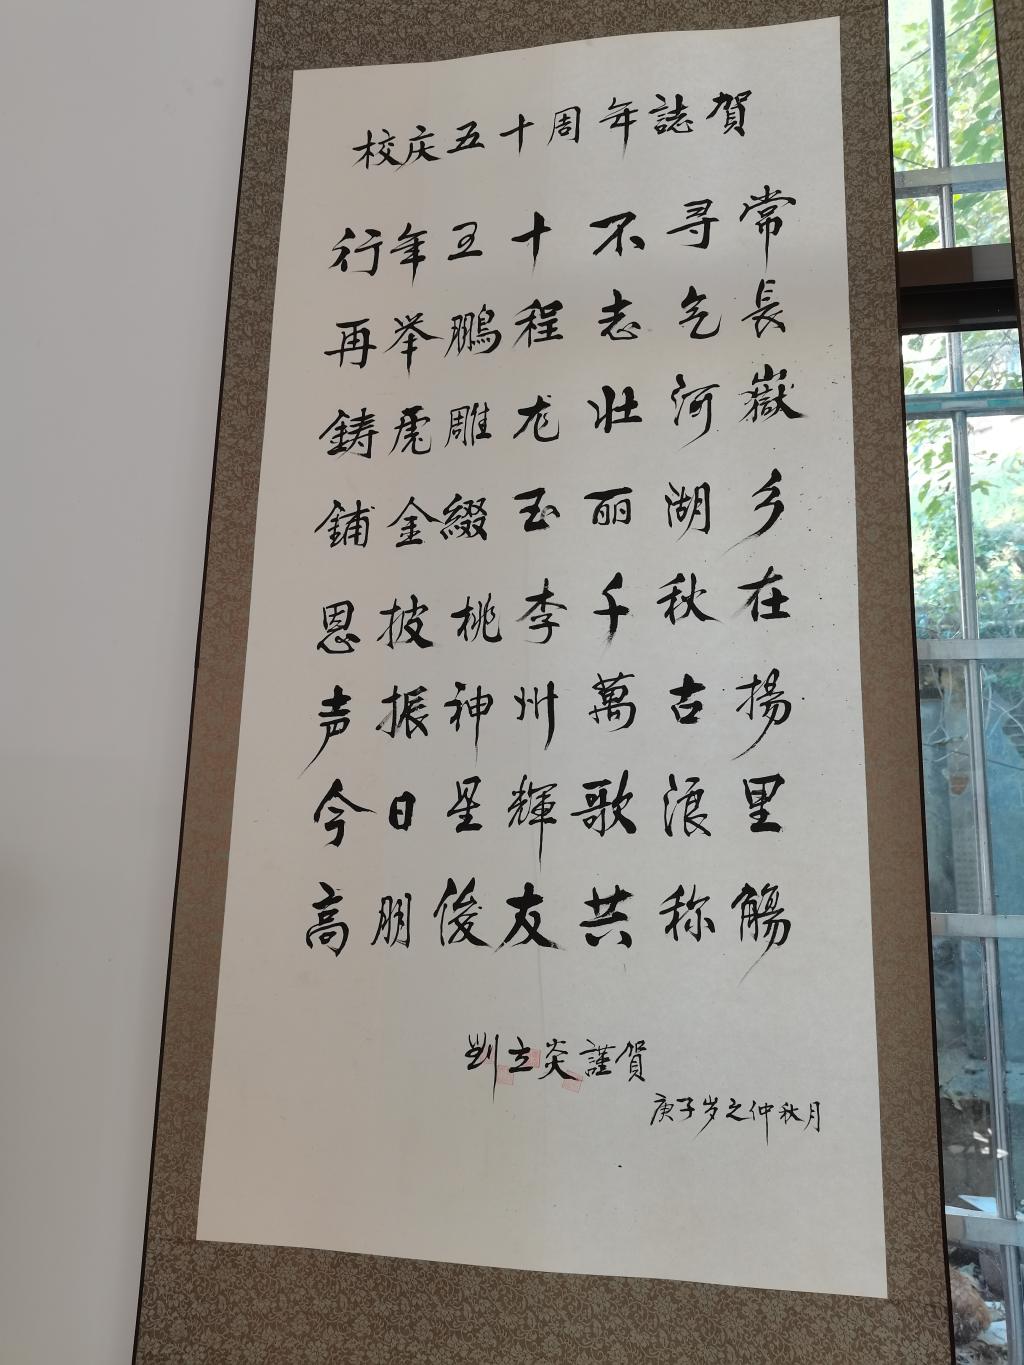 校庆五十周年誌賀
行年五十不寻常
再举鵬程志气長
鋳虎雕龙壮河嶽
鋪金綴玉丽湖乡
恩披桃李千秋在
声振神州萬古揚
今日星輝歌浪里
高朋俊友共称觴
劉立炎謹賀
庚子岁之仲秋月